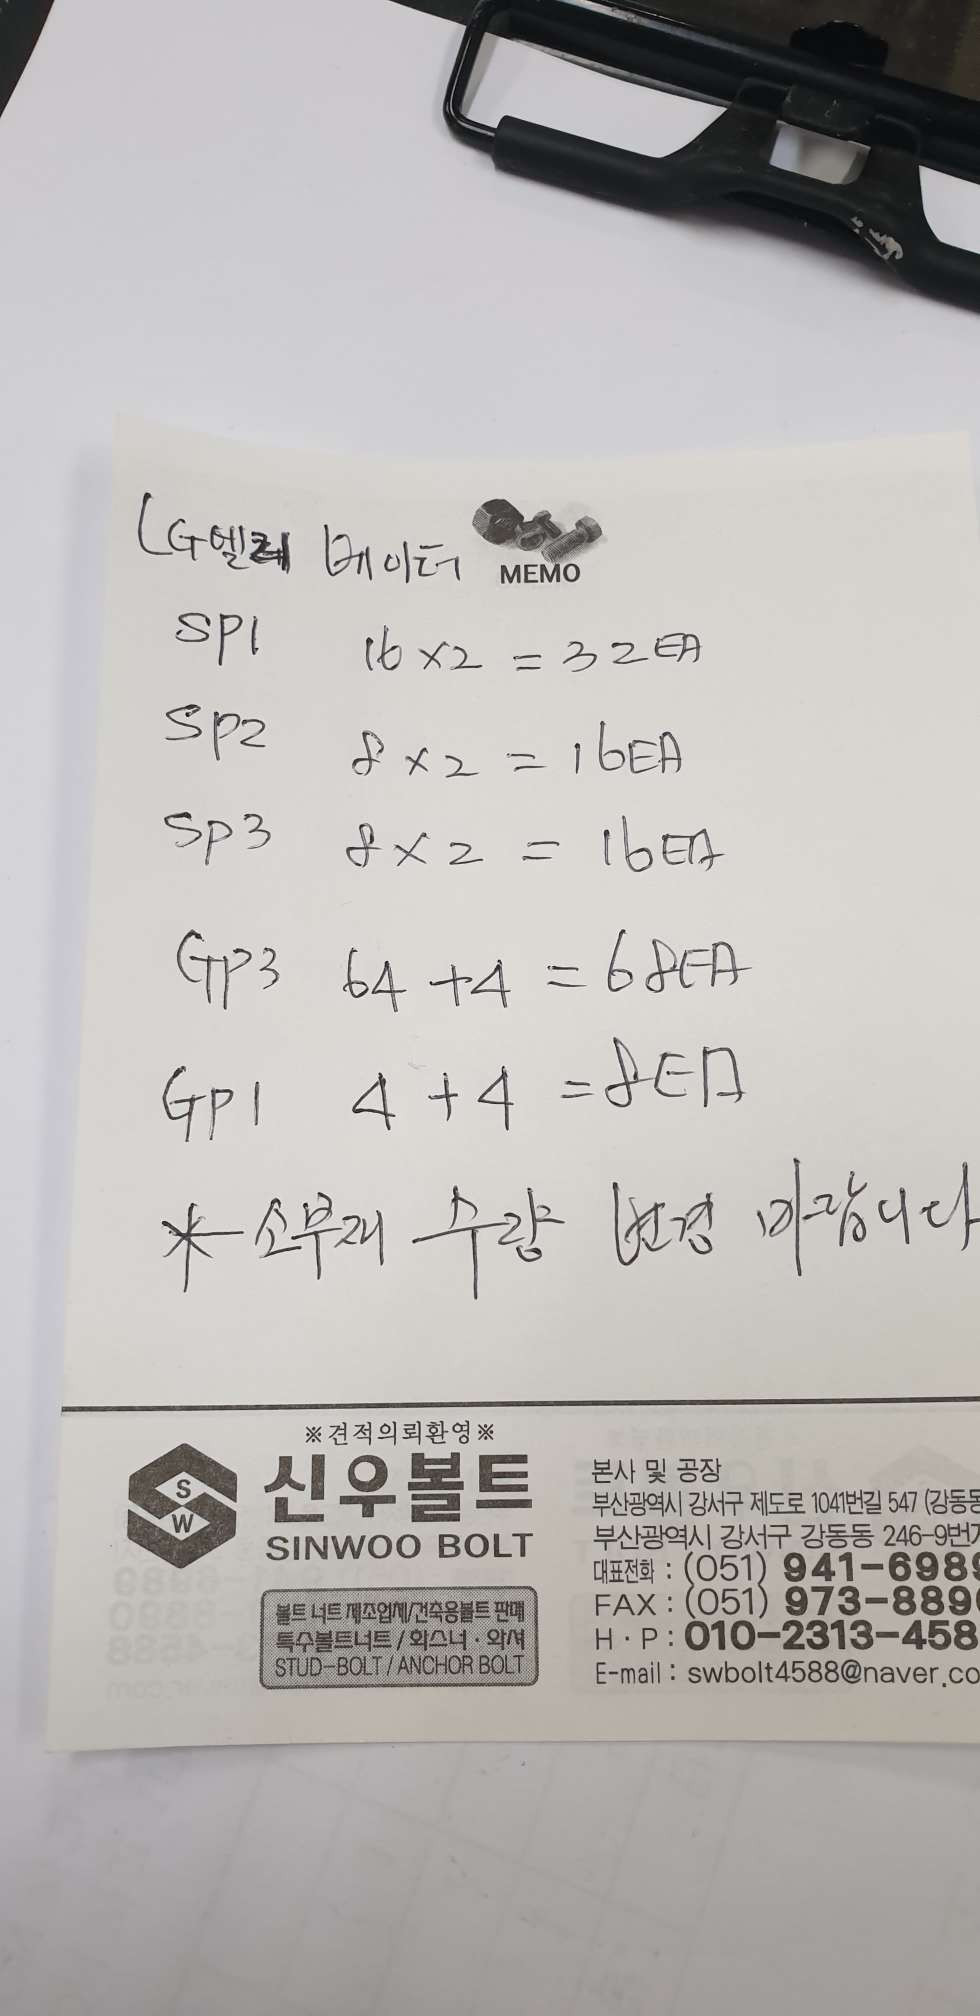 LG엘레베이터
MEMO
SP1 16×2 = 32EA
SP2 8×2 = 16EA
SP3 8×2 = 16EA
GP3 64+4 = 68EA
GP1 4+4 = 8EA
* 소부재 수량 변경 바랍니다
※견적의뢰환영※
SW
신우볼트
SINWOO BOLT
볼트 너트 제조업체/건축용볼트 판매
특수볼트너트 / 와스너 · 와셔
STUD-BOLT / ANCHOR BOLT
본사 및 공장
부산광역시 강서구 제도로 1041번길 547 (강동동
부산광역시 강서구 강동동 246-9번지
대표전화 : (051) 941-6989
FAX : (051) 973-889
H · P : 010-2313-458
E-mail : swbolt4588@naver.co